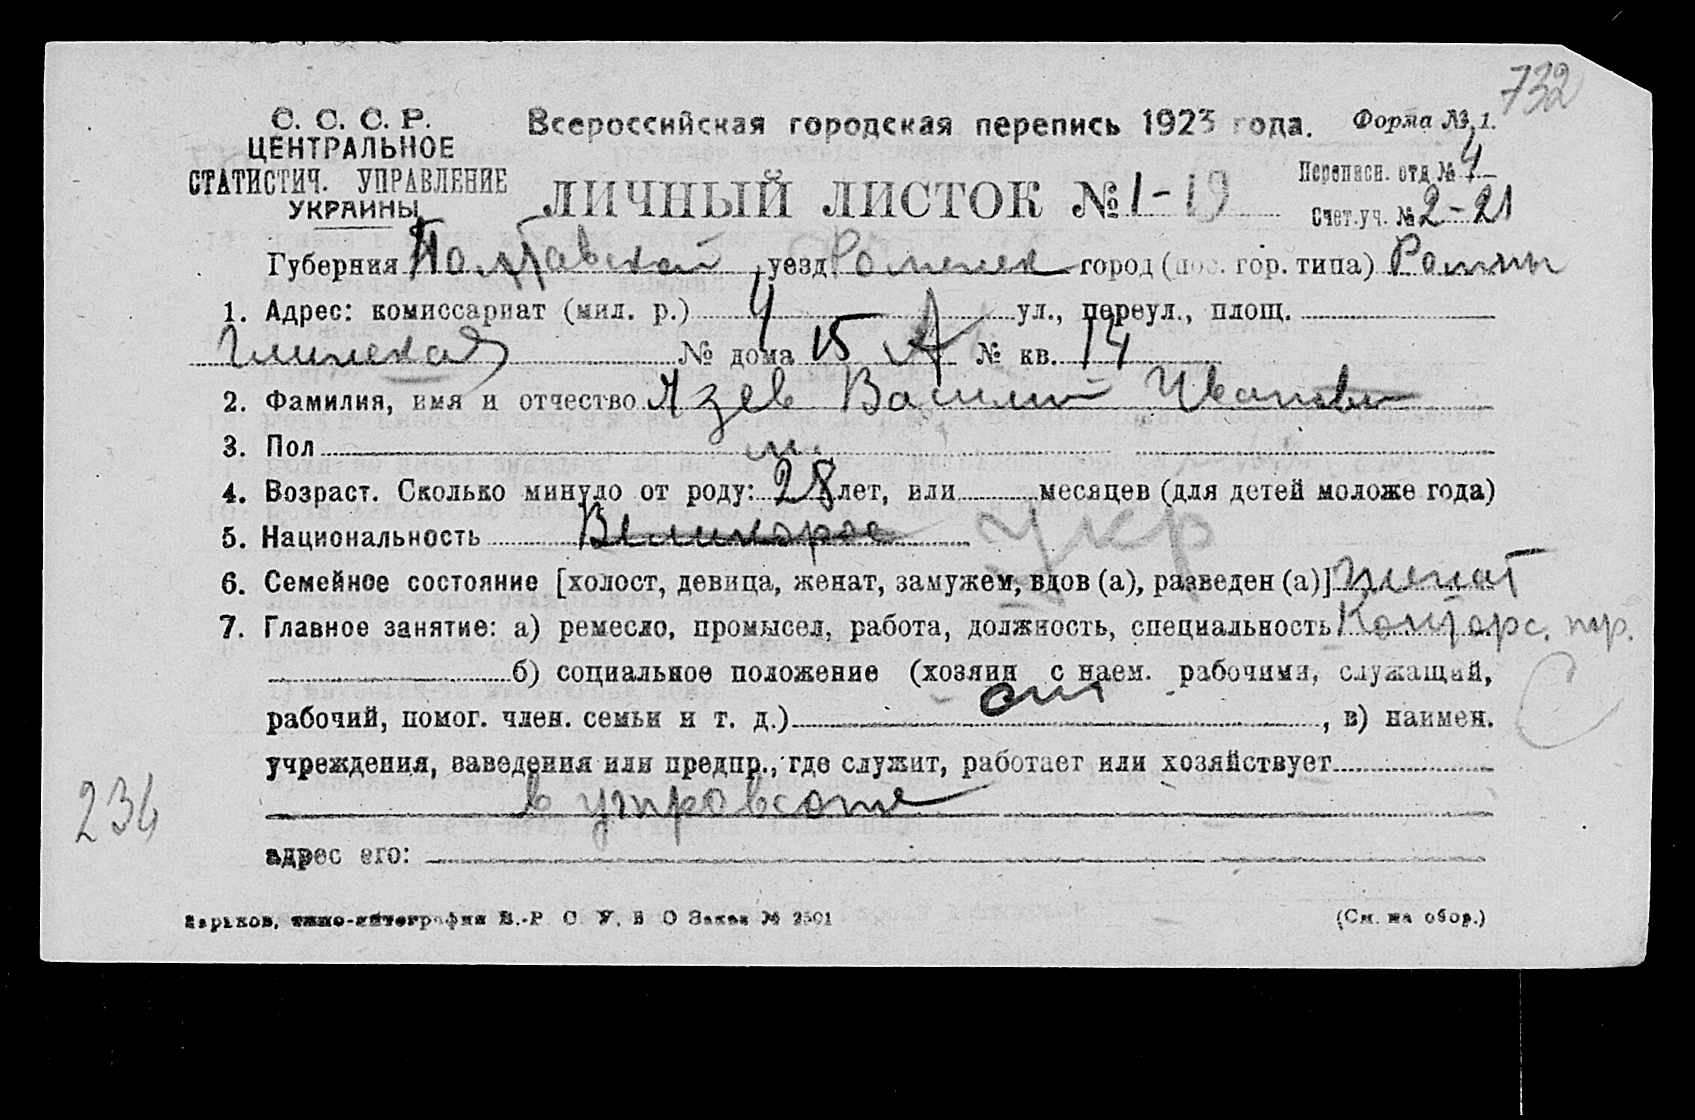 732
С. С. С. Р.
ЦЕНТРАЛЬНОЕ
СТАТИСТИЧ. УПРАВЛЕНИЕ
УКРАИНЫ
Всероссийская городская перепись 1923 года.
Форма № 1.
ЛИЧНЫЙ ЛИСТОК № 1-19
Переписн. отд № 4
Счет.уч. № 2-21
Губерния Полтавской уезд Роменск город (пос. гор. типа) Ромны
1. Адрес: комиссариат (мил. р.) 4 ул., переул., площ.
Глинская № дома 15 А № кв. 14
2. Фамилия, имя и отчество Азев Василий Иванович
3. Пол м.
4. Возраст. Сколько минуло от роду: 28 лет, или месяцев (для детей моложе года)
5. Национальность Великорос укр
6. Семейное состояние [холост, девица, женат, замужем, вдов (а), разведен (а)] женат
7. Главное занятие: а) ремесло, промысел, работа, должность, специальность Конторс.
б) социальное положение (хозяин с наем. рабочими, служащий,
рабочий, помог. член. семьи и т. д.) , в) наимен.
учреждения, заведения или предпр., где служит, работает или хозяйствует
в
адрес его:
236
Харьков, типо-литография В.-Р С. У. В О Заказ № 2501
(См. на обор.)